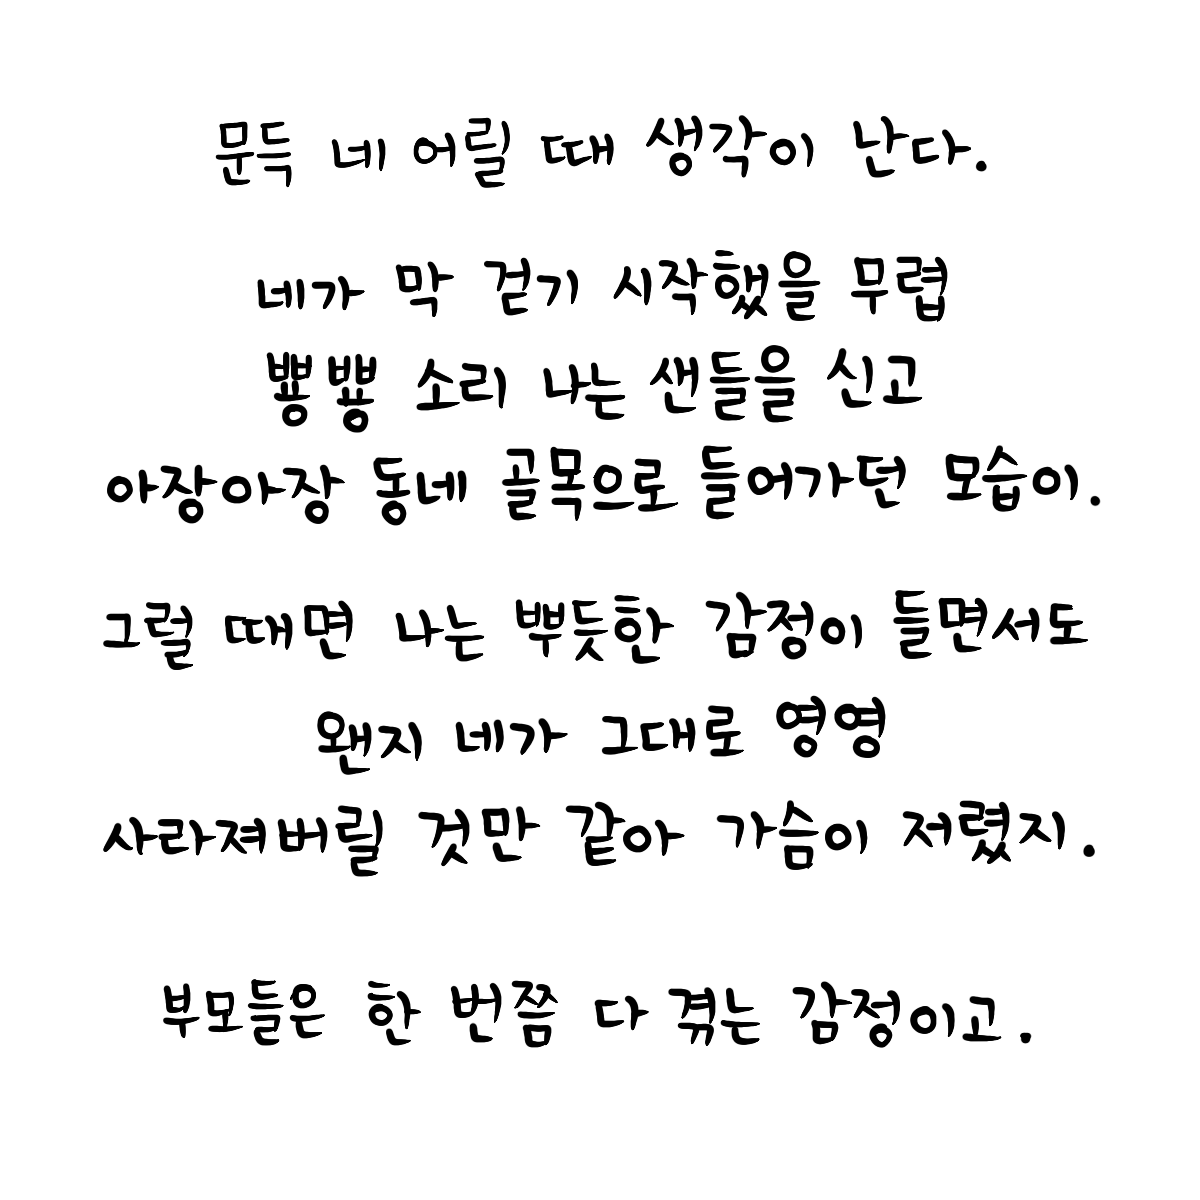 문득 네 어릴 때 생각이 난다.
네가 막 걷기 시작했을 무렵
뿅뿅 소리 나는 샌들을 신고
아장아장 동네 골목으로 들어가던 모습이.
그럴 때면 나는 뿌듯한 감정이 들면서도
왠지 네가 그대로 영영
사라져버릴 것만 같아 가슴이 저렸지.
부모들은 한 번쯤 다 겪는 감정이고.